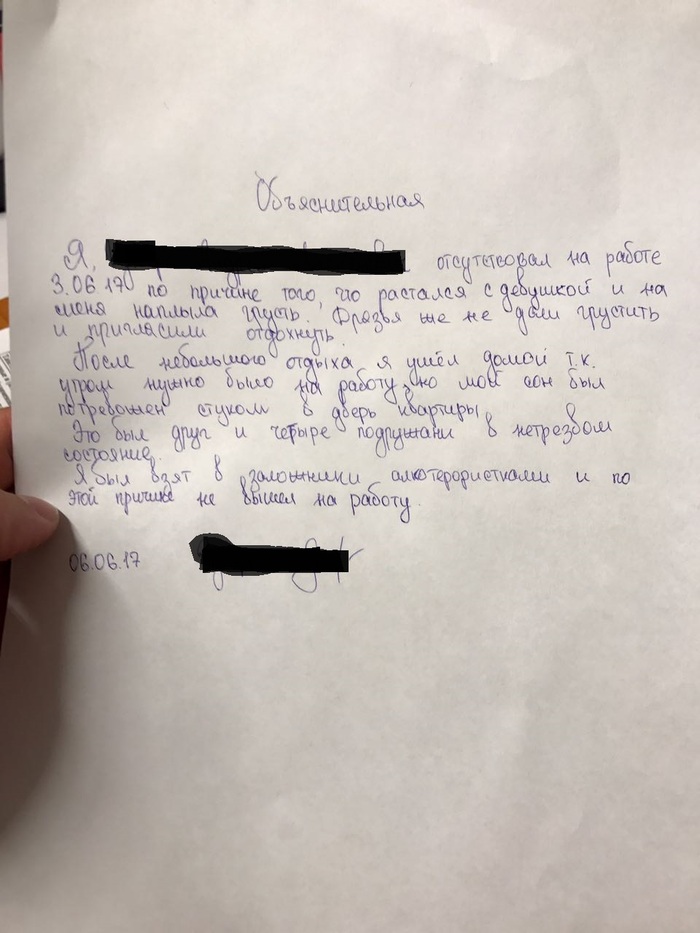 Объяснительная
Я, отсутствовал на работе
3.06.17 по причине того, что растался с девушкой и на
меня наплыла грусть. Друзья же не дали грустить
и пригласили отдохнуть.
После небольшого отдыха я ушёл домой т.к.
утром нужно было на работу, но мой сон был
потревожен стуком в дверь квартиры.
Это был друг и четыре подружани в нетрезвом
состояние.
Я был взят в заложники алкотерористками и по
этой причине не вышел на работу.
06.06.17